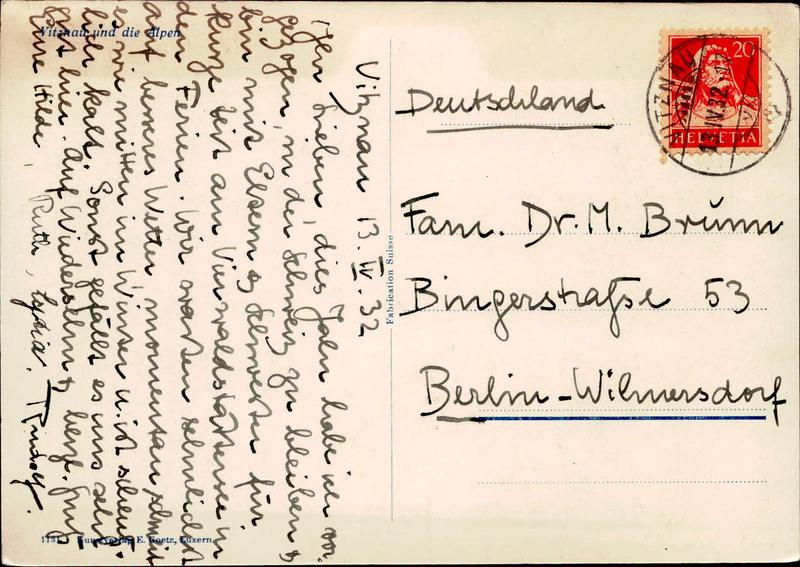 Vitznau und die Alpen
Vitznau 13. IV. 32
Lieben, dies Jahr habe ich vor-
gezogen, in der Schweiz zu bleiben &
bin mit Eltern & Schwester für
kurze Zeit am Vierwaldstättersee in
den Ferien. Wir warten sehnlichst
auf besseres Wetter, momentan schneit
es wie mitten im Winter u. ist scheuss-
lich kalt. Sonst gefällt es uns sehr
gut hier. Auf Wiedersehn & herzl.
Eure Hilde, Ruth, Lydia. Rudolf.
Fabrication Suisse
Kunstverlag E. Goetz, Luzern
20
HELVETIA
VITZNAU
13.IV.32
Deutschland
Fam. Dr. M. Brünn
Bingerstraße 53
Berlin-Wilmersdorf